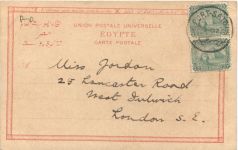 UNION POSTALE UNIVERSELLE
EGYPTE
CARTE POSTALE
PORT-SAID
Miss Jordan
25 Lancaster Road
West Dulwich
London S.E.